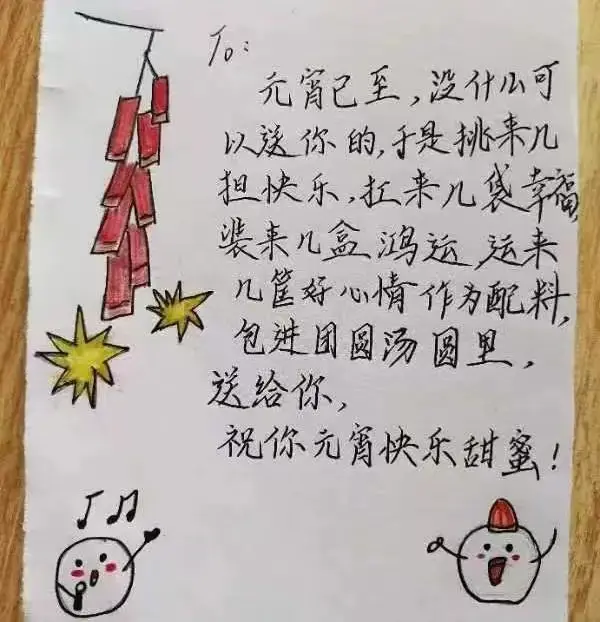 To:
元宵已至,没什么可
以送你的,于是挑来几
担快乐,扛来几袋幸福,
装来几盒鸿运,运来
几筐好心情作为配料,
包进团圆汤圆里,
送给你,
祝你元宵快乐甜蜜!